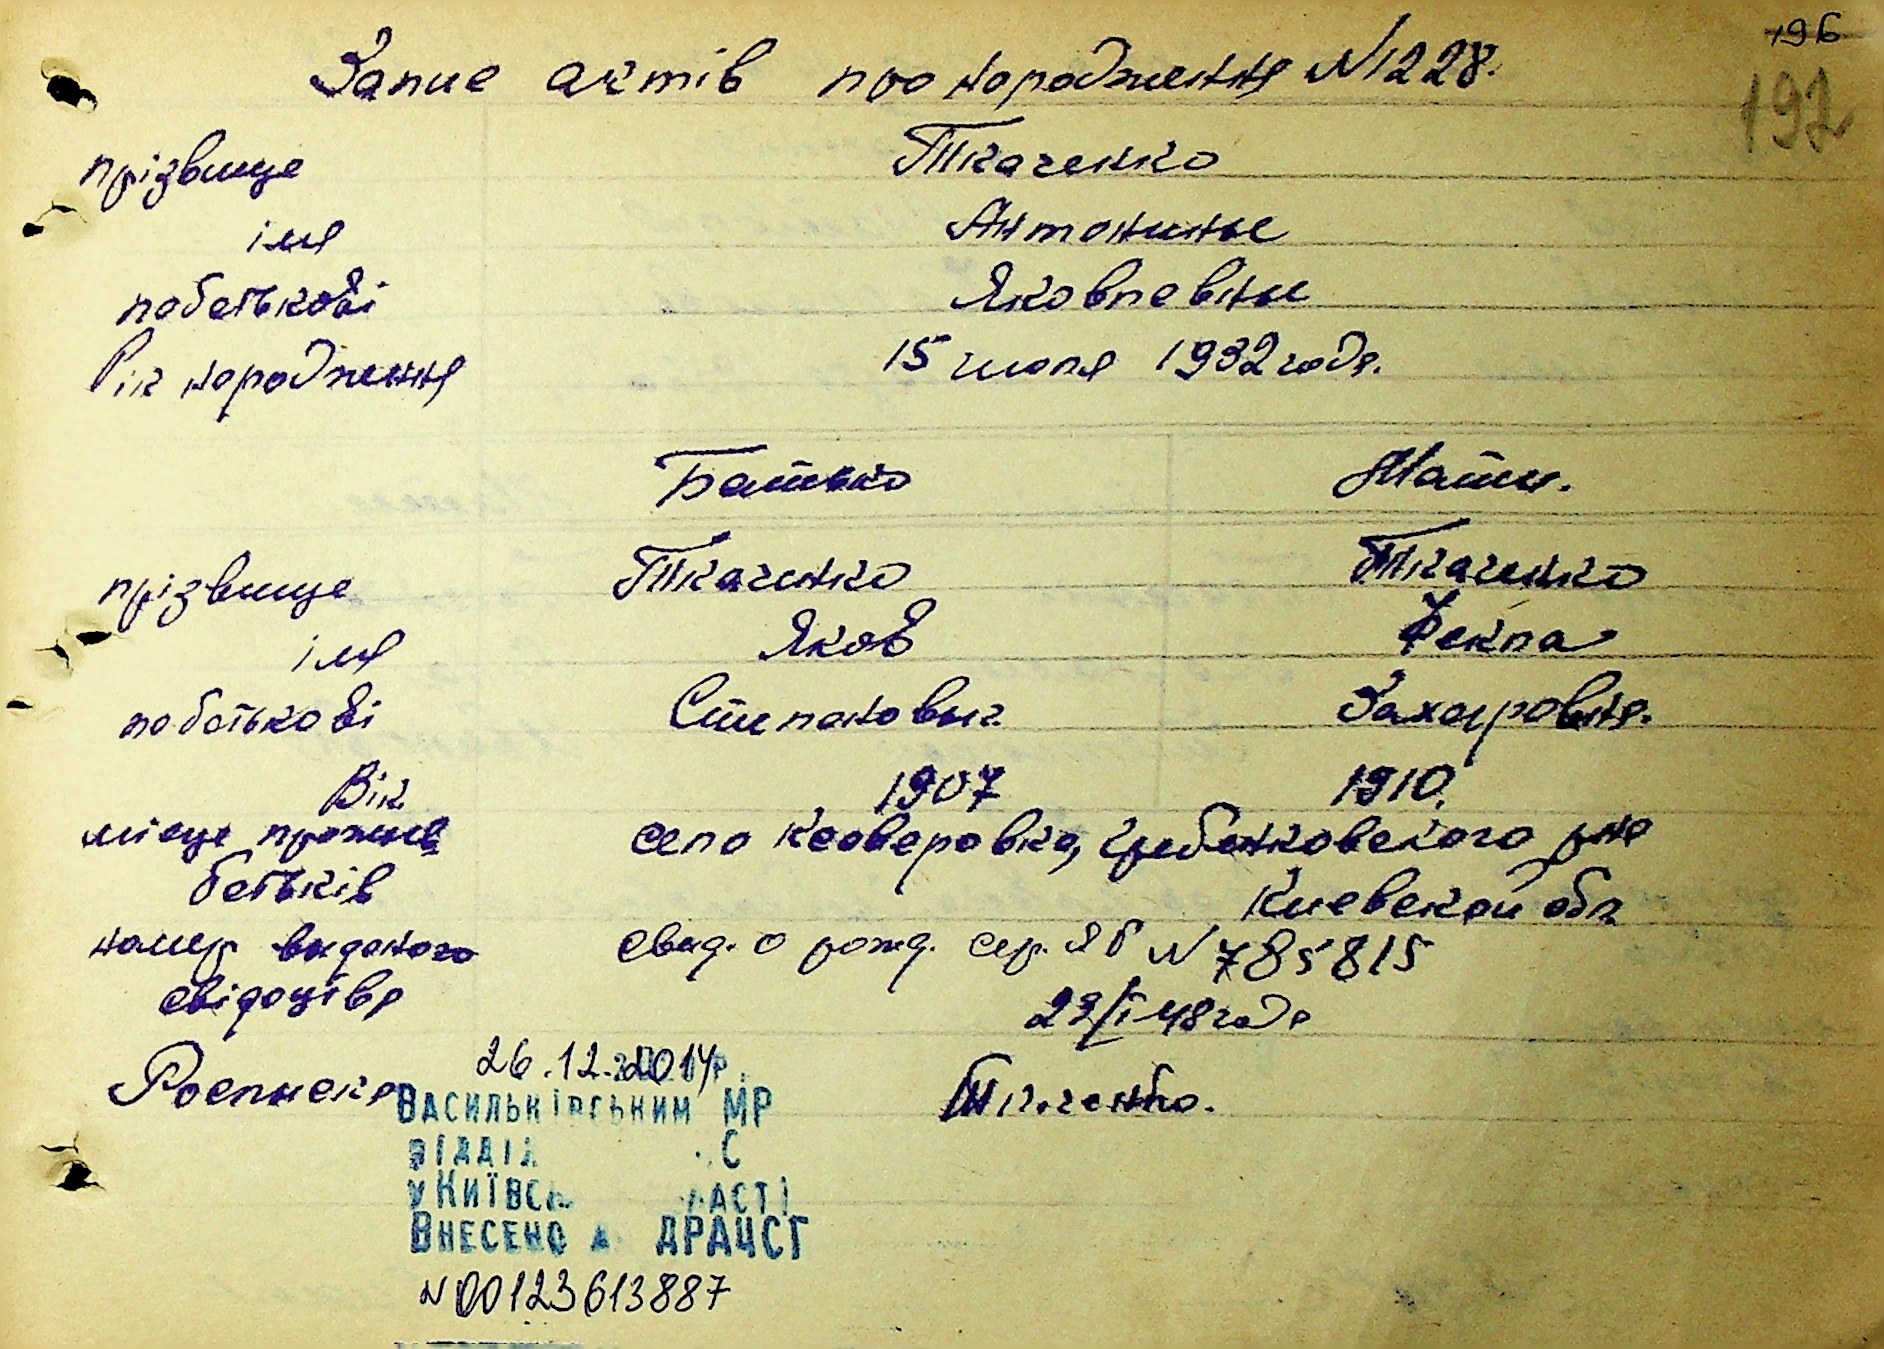 196
192
Запис актів про народження N 1228.
прізвище Ткаченко
імя Антонины
побатькові Яковлевны
Рік народження 15 июля 1932 года.
Батько Мати.
прізвище Ткаченко Ткаченко
імя Яков Фекла
побатькові Степанович Захаровна.
Вік 1907 1910.
місце прожив село Ксаверовка, Гребенковского р-на
батьків Киевской обл
номер виданого свид. о рожд. сер. ЯБ N 785815
свідоцтва 29/I 48 года
Росписка Ткаченко.
26.12.2014р.
ВАСИЛЬКІВСЬКИМ МР
ВІДДІЛ С
У КИЇВСЬ ЛАСТІ
ВНЕСЕНО Д ДРАЦСГ
N 00123613887